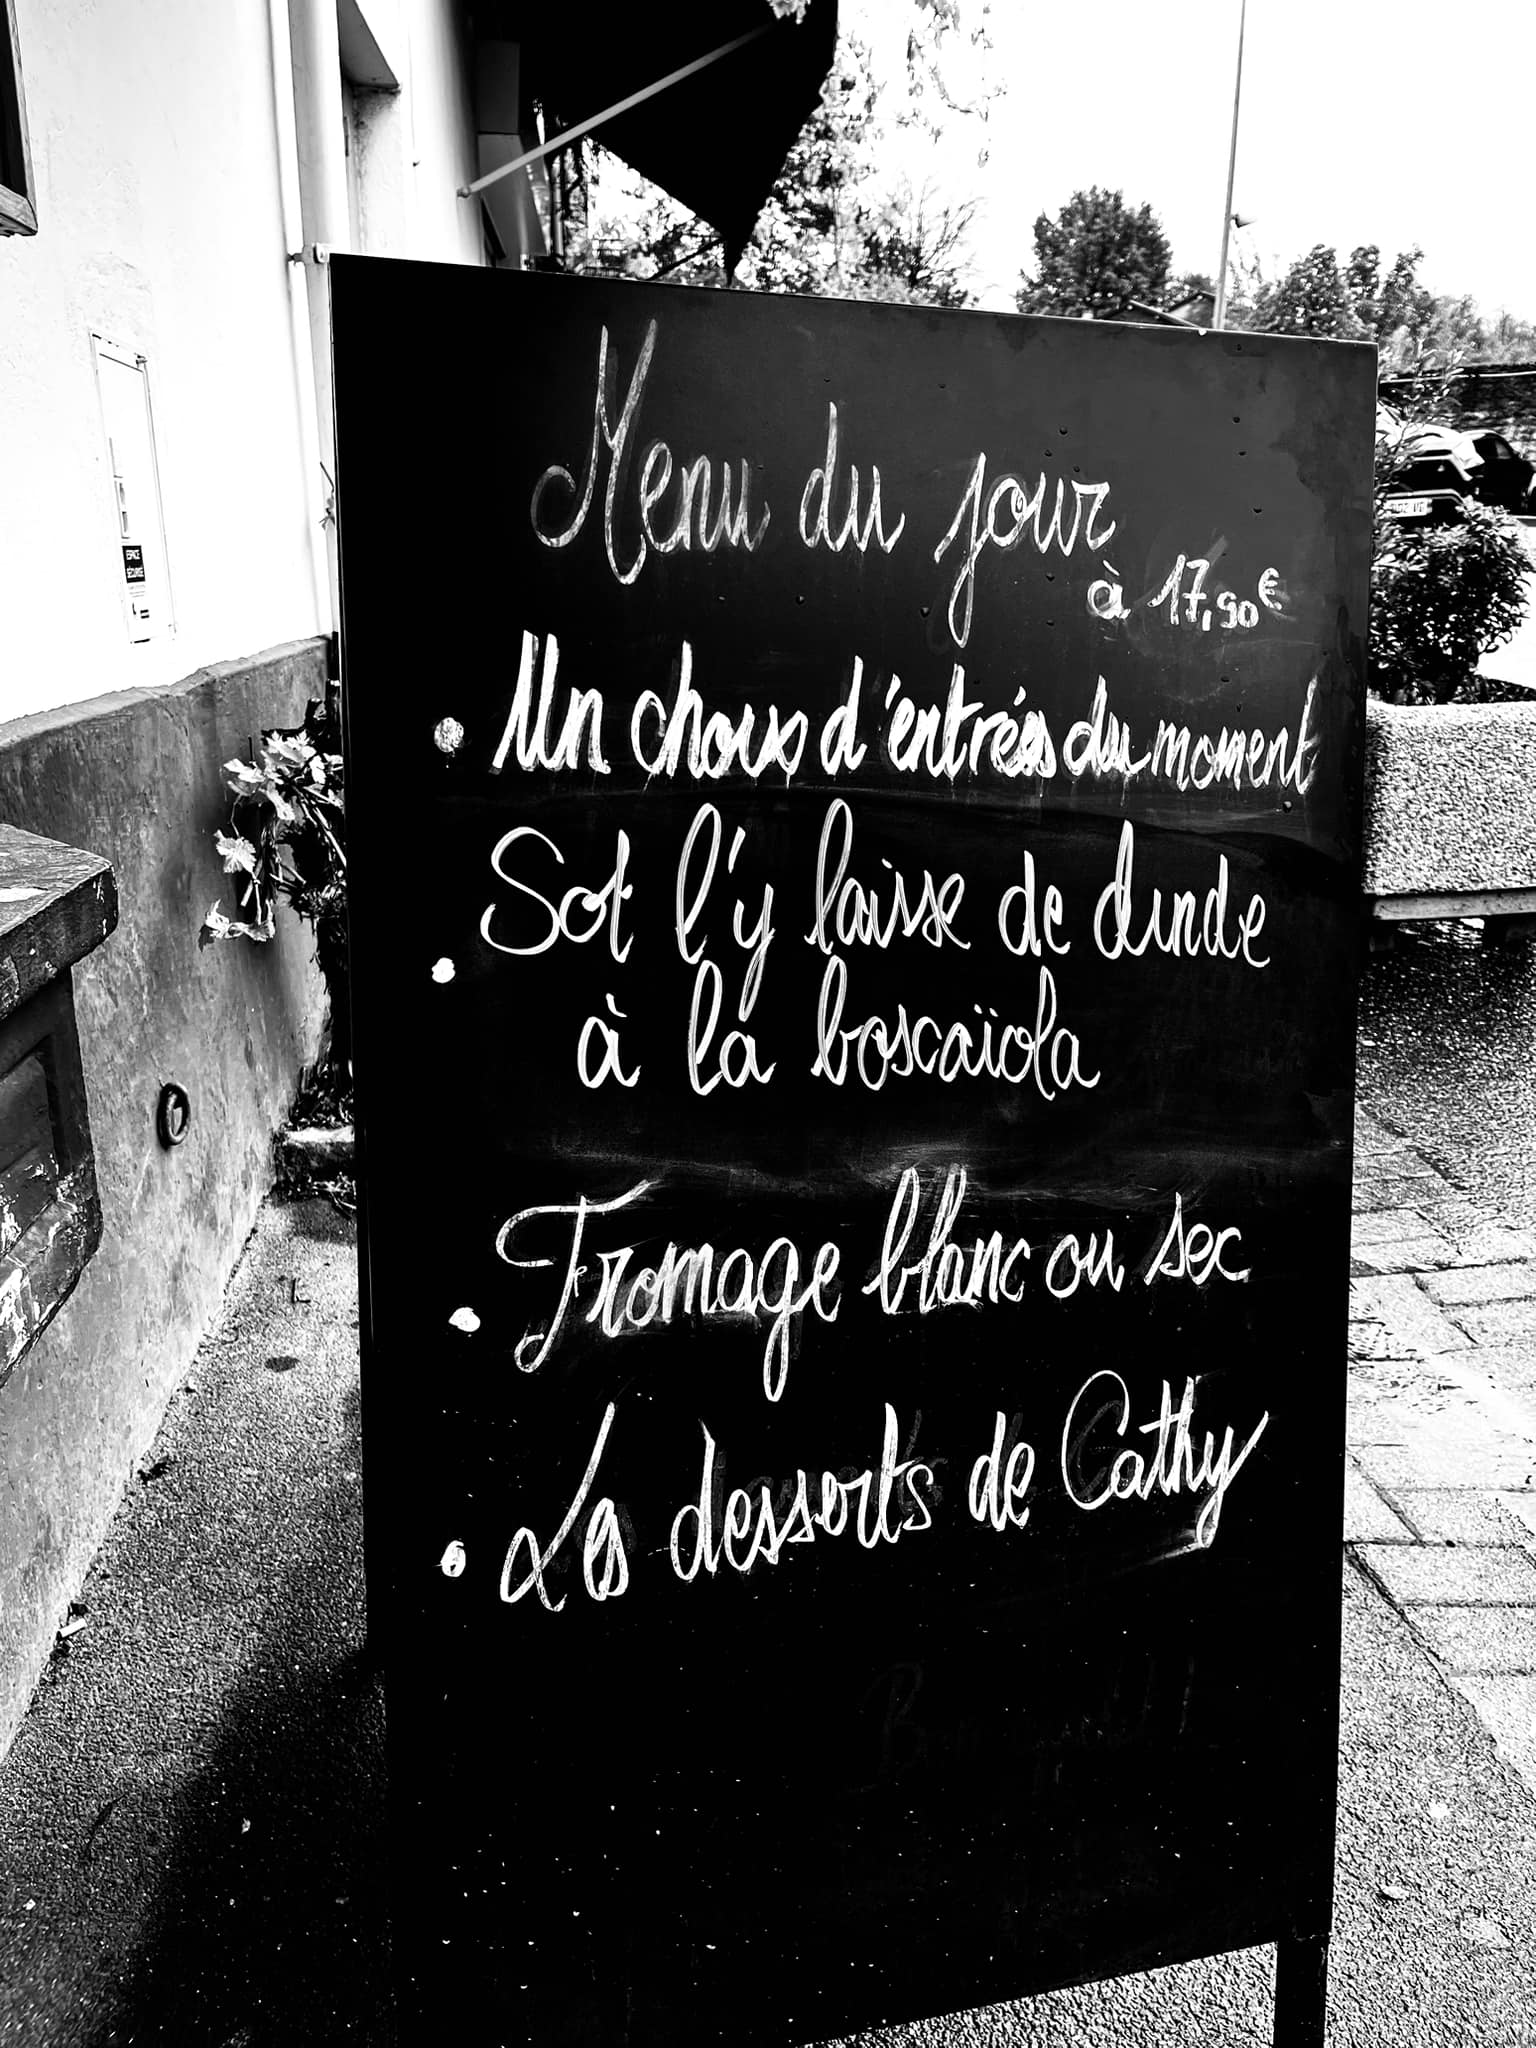 Menu du jour
à 17,90€
• Un choix d'entrées du moment
• Sot l'y laisse de dinde
à la boscaïola
• Fromage blanc ou sec
• Les desserts de Cathy
ESPACE
SÉCURISÉ